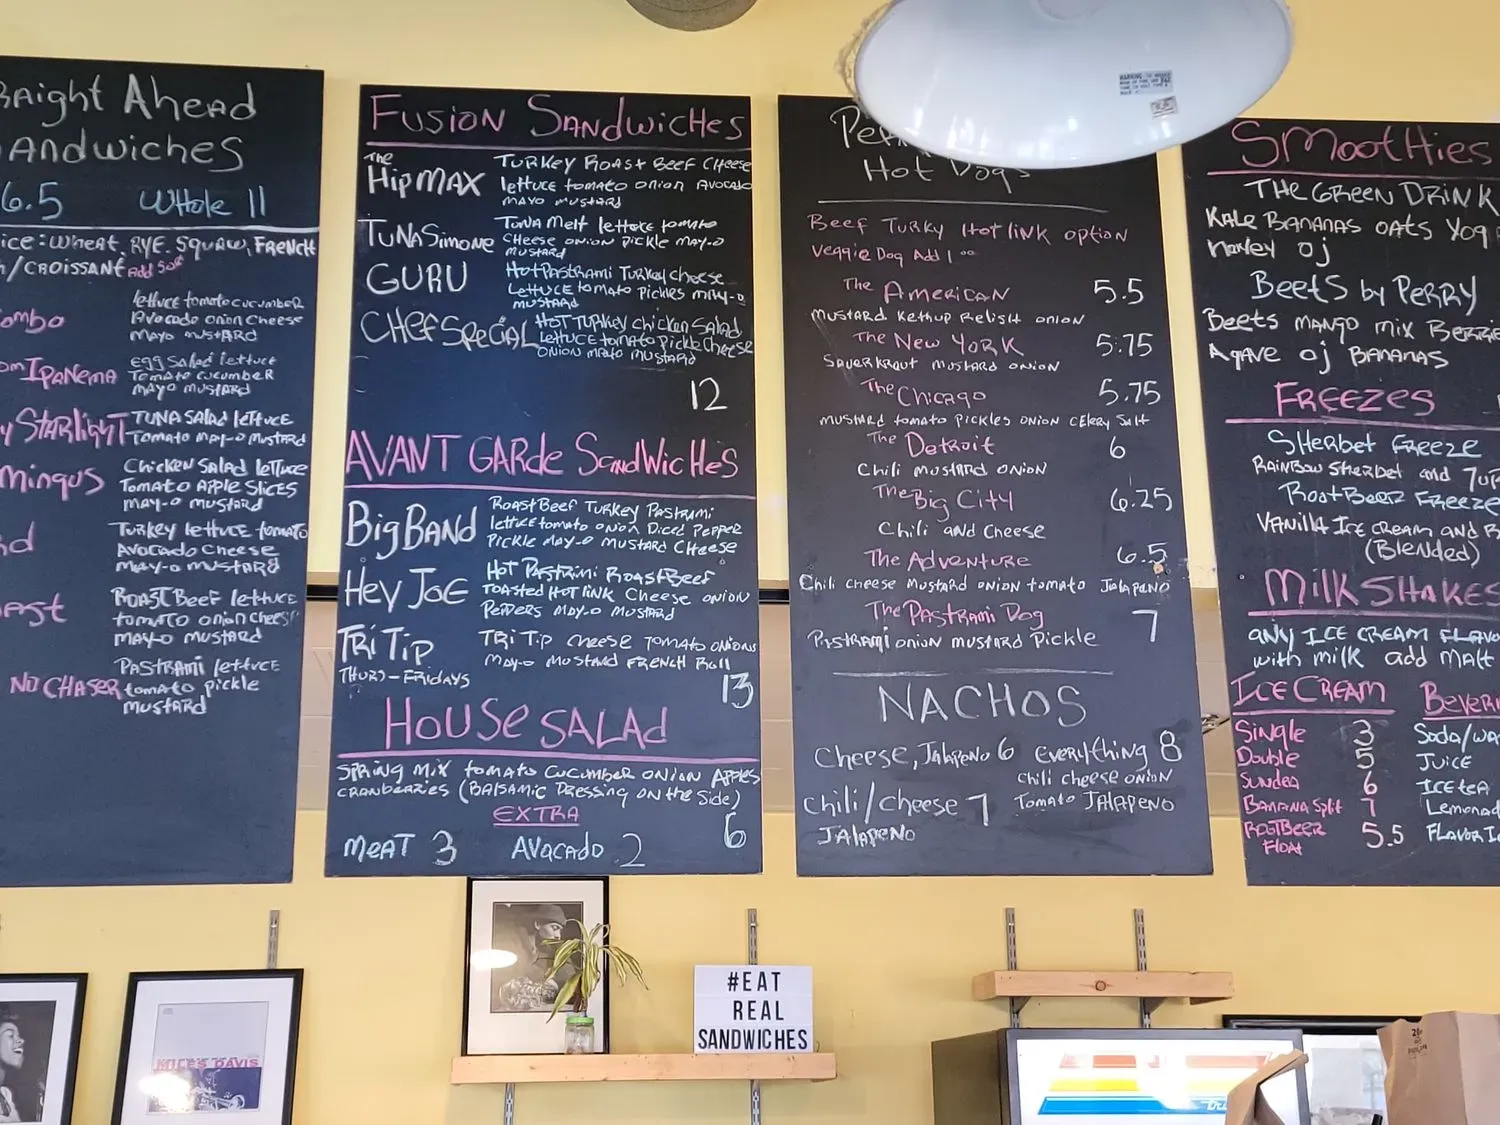 Ahead
6.5 Whole 11
Wheat, Rye, Squaw, French
/Croissant Add 50¢
lettuce tomato cucumber
Avocado onion Cheese
Mayo mustard
Ipanema
egg salad lettuce
Tomato cucumber
mayo mustard
Starlight
Tuna Salad lettuce
Tomato may-o mustard
Mingus
Chicken Salad lettuce
Tomato Apple Slices
may-o mustard
Turkey lettuce tomato
Avocado Cheese
may-o mustard
Roast Beef lettuce
tomato onion cheese
mayo mustard
No Chaser
Pastrami lettuce
tomato pickle
mustard
Fusion Sandwiches
The
HipMax
Turkey Roast Beef Cheese
lettuce tomato onion Avocado
mayo mustard
TunaSimone
Tuna Melt lettuce tomato
cheese onion pickle may-o
mustard
Guru
Hot Pastrami Turkey cheese
Lettuce tomato pickles may-o
mustard
Chef Special
Hot Turkey chicken Salad
lettuce tomato pickle cheese
onion mayo mustard
12
Avant Garde Sandwiches
Big Band
Roast Beef Turkey Pastrami
lettuce tomato onion Diced Pepper
Pickle may-o mustard Cheese
Hey Joe
Hot Pastrimi Roast Beef
Toasted Hot link Cheese onion
Peppers may-o mustard
Tri Tip
Tri Tip cheese Tomato onions
may-o mustard French Roll
Thurs-Fridays
13
House Salad
Spring mix tomato cucumber onion Apples
cranberries (Balsamic Dressing on the side)
Extra
6
Meat 3 Avocado 2
Hot Dogs
Beef Turky Hot link option
Veggie Dog Add 1.00
The American 5.5
Mustard Kethup Relish onion
The New York 5.75
Sauerkraut mustard onion
The Chicago 5.75
mustard tomato pickles onion celery salt
The Detroit 6
Chili mustard onion
The Big City 6.25
Chili and Cheese
The Adventure 6.5
Chili cheese mustard onion tomato Jalapeno
The Pastrami Dog 7
Pastrami onion mustard pickle
Nachos
Cheese, Jalapeno 6 everything 8
chili cheese onion
Tomato Jalapeno
chili/cheese 7
Jalapeno
Smoothies
The Green Drink
Kale Bananas oats
oj
Beets by Perry
Beets mango mix
Agave oj Bananas
Freezes
Sherbet Freeze
Rainbow Sherbet and 7up
RootBeer Freeze
Vanilla Ice cream and
(Blended)
MilkShakes
any Ice cream
with milk add malt
Ice Cream
Single 3
Double 5
Sundea 6
Banana Split 7
RootBeer
Float 5.5
Juice
Ice tea
#EAT
REAL
SANDWICHES
MILES DAVIS